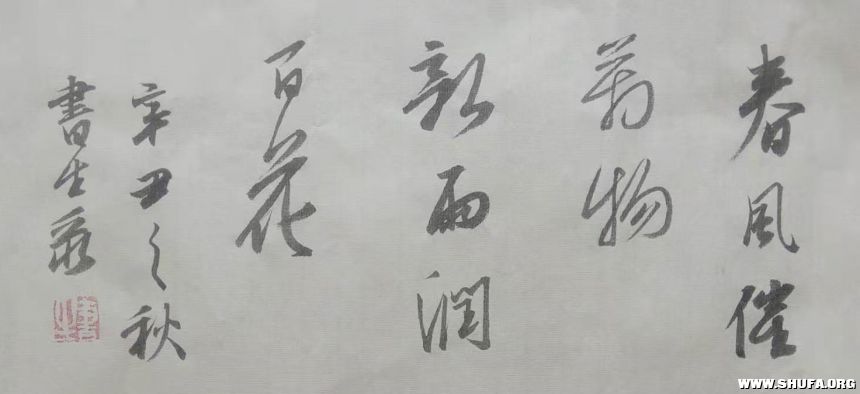 春風催
萬物
新雨潤
百花
辛丑之秋
書生
WWW.SHUFA.ORG